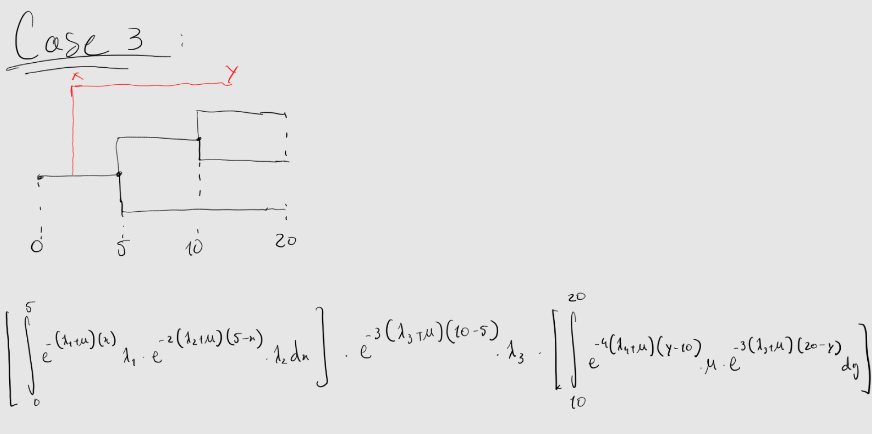 Case 3 :
x y
0 5 10 20
[∫₀⁵ e^{-(λ₁+μ)(x)} λ₁ · e^{-2(λ₂+μ)(5-x)} · λ₂ dx] · e^{-3(λ₃+μ)(10-5)} · λ₃ · [∫₁₀²⁰ e^{-4(λ₄+μ)(y-10)} · μ · e^{-3(λ₃+μ)(20-y)} dy]